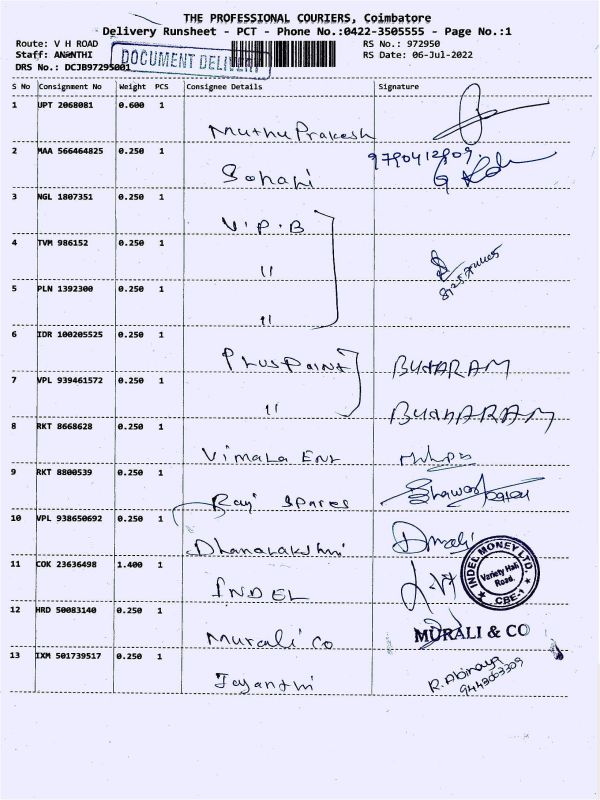 THE PROFESSIONAL COURIERS, Coimbatore
Delivery Runsheet - PCT - Phone No.:0422-3505555 - Page No.:1
Route: V H ROAD RS No.: 972950
Staff: ANANTHI RS Date: 06-Jul-2022
DOCUMENT DELIVERY
DRS No.: DCJB97295001
S No Consignment No Weight PCS Consignee Details Signature
1 UPT 2068081 0.600 1
Muthu Prakesh
2 MAA 566464825 0.250 1 9790412809
Sohani
3 NGL 1807351 0.250 1
V.P.B
4 TVM 986152 0.250 1
"
5 PLN 1392300 0.250 1
"
6 IDR 100205525 0.250 1
PlusPoint BUDHARAM
7 VPL 939461572 0.250 1
" BUDHARAM
8 RKT 8668628 0.250 1
Vimala Ent
9 RKT 8800539 0.250 1
Raj Spares
10 VPL 938650692 0.250 1
Dhanalakshmi
11 COK 23636498 1.400 1
INDEL
INDEL MONEY LTD.
Variety Hall
Road.
CBE-1
12 HRD 50083140 0.250 1
Murali Co MURALI & CO
13 IXM 501739517 0.250 1
Jayanthi R. Abinaya
9443003309